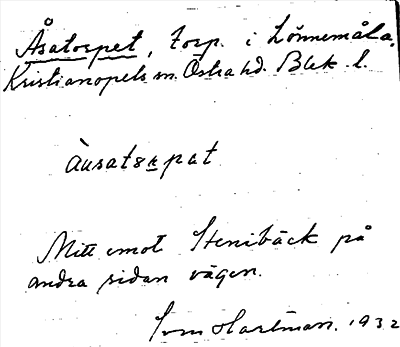 Åsatorpet, torp. i Lönnemåla,
Kristianopels sn. Östra hd. Blek. l.
àusatsṟpat
Mitt emot Stenibäck på
andra sidan vägen.
Sven Hartman. 1932